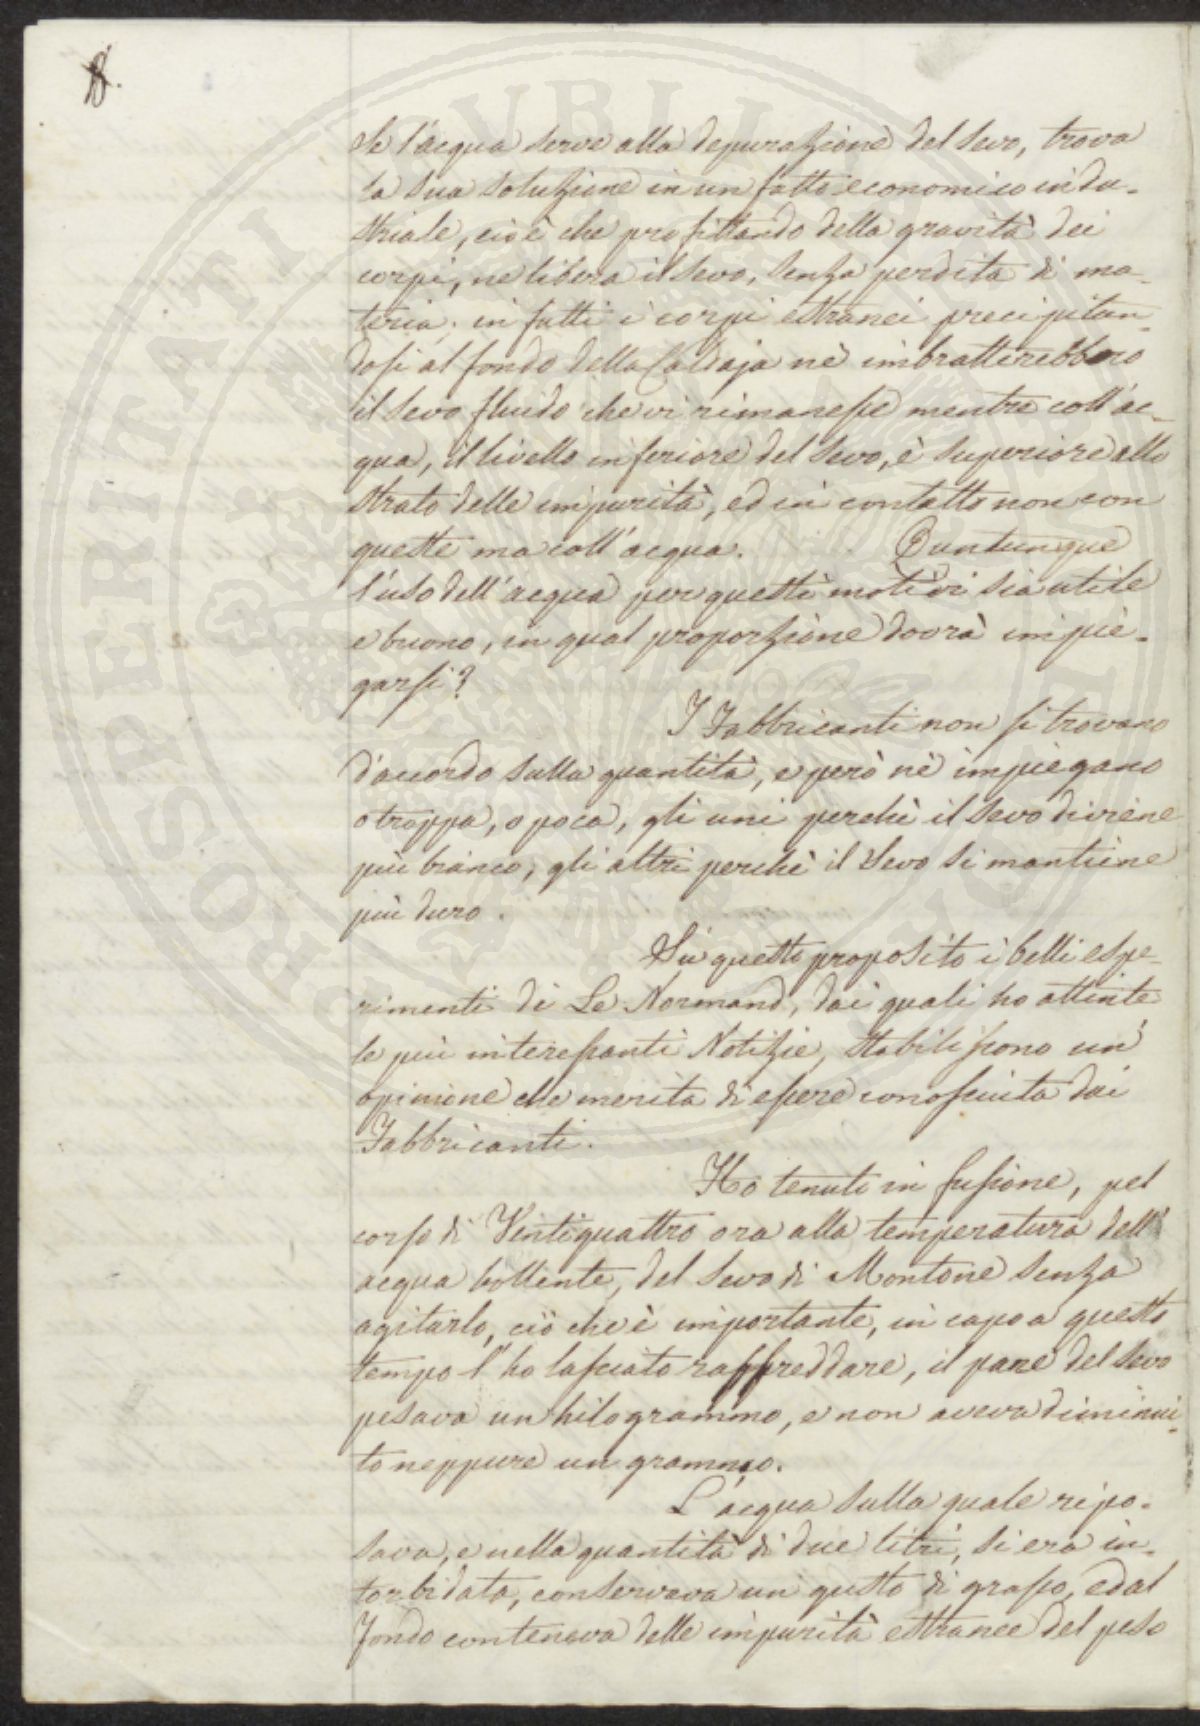 8.
Se l'acqua serve alla depurazione del Sevo, trova
la sua soluzione in un fatto economico indu-
striale, cioè che profittando della gravità dei
corpi, ne libera il Sevo, senza perdita di ma-
teria; in fatti i corpi estranei precipitan-
dosi al fondo della Caldaja nè imbratterebbero
il Sevo fluido che vi rimanesse mentre coll'ac-
qua, il livello inferiore del Sevo, è superiore allo
strato delle impurità, ed in contatto non con
queste ma coll'acqua. Quntunque
l'uso dell'acqua per questi motivi sia utile
e buono, in qual proporzione dovrà impie-
garsi?
I Fabbricanti non si trovano
d'accordo sulla quantità, e però nè impiegano
o troppa, o poca, gli uni perchè il Sevo diviene
più bianco, gli altri perchè il Sevo si mantiene
più duro.
Su questo proposito i belli espe-
rimenti di Le Normand, dai quali ho attinte
le più interessanti Notizie, stabiliscono un'
opinione che merita di essere conosciuta dai
Fabbricanti.
Ho tenuti in fusione, pel
corso di Ventiquattro ora alla temperatura dell'
acqua bollente, del Sevo di Montone senza
agitarlo, ciò che è importante, in capo a questo
tempo l'ho lasciato raffreddare, il pane del Sevo
pesava un kilogrammo, e non aveva diminui-
to neppure un grammo.
L'acqua sulla quale ripo-
sava, e nella quantità di due litri, si era in-
torbidata, conservava un gusto di grasso, ed al
fondo conteneva delle impurità estranee del peso
PROSPERITATI PUBLI